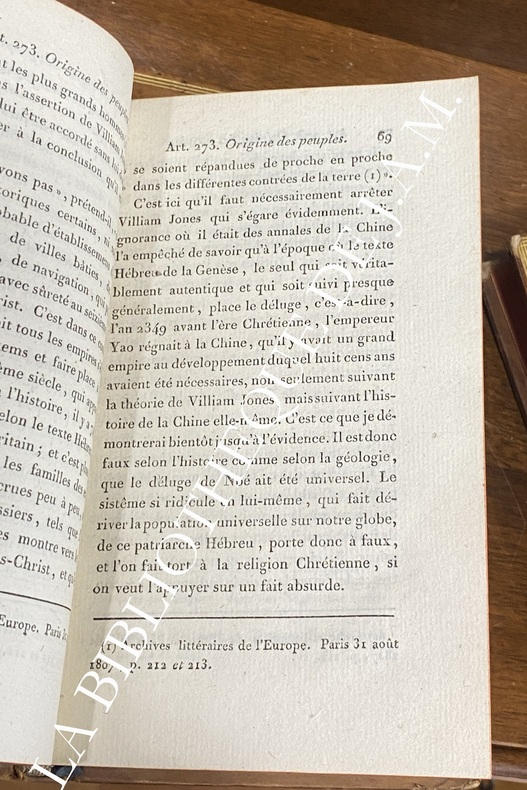 t. 273. Origine des peuples
t les plus grands homm
s l'assertion de Villiam
lui être accordé sans l
er à la conclusion qu'i
vons pas », prétend-il
oriques certains, ni
bable d'établissemen
de villes bâties, d
de navigation, qui
avec sûreté au seizièm
rist. C'est dans ce
it tous les empires
tems et faire place
ème siècle, qui app
l'histoire, il y a
elon le texte Héb
ritain; et c'est
les familles de
crues peu à peu,
ssiers, tels que
es montre vers l
s-Christ, et q
Europe. Paris
Art. 273. Origine des peuples. 69
se soient répandues de proche en proche
dans les différentes contrées de la terre (1) ».
C'est ici qu'il faut nécessairement arrêter
Villiam Jones qui s'égare évidemment. L'i-
gnorance où il était des annales de la Chine
l'a empêché de savoir qu'à l'époque où le texte
Hébreu de la Genèse, le seul qui soit vérita-
blement autentique et qui soit suivi presque
généralement, place le déluge, c'est-à-dire,
l'an 2349 avant l'ère Chrétienne, l'empereur
Yao régnait à la Chine, qu'il y avait un grand
empire au développement duquel huit cens ans
avaient été nécessaires, non seulement suivant
la théorie de Villiam Jones, mais suivant l'his-
toire de la Chine elle-même. C'est ce que je dé-
montrerai bientôt jusqu'à l'évidence. Il est donc
faux selon l'histoire comme selon la géologie,
que le déluge de Noé ait été universel. Le
sistême si ridicule en lui-même, qui fait dé-
river la population universelle sur notre globe,
de ce patriarche Hébreu, porte donc à faux,
et l'on fait tort à la religion Chrétienne, si
on veut l'appuyer sur un fait absurde.
(1) Archives littéraires de l'Europe. Paris 31 août
1807. p. 212 et 213.
LA BIBLIOTHEQUE DE J.A.M.